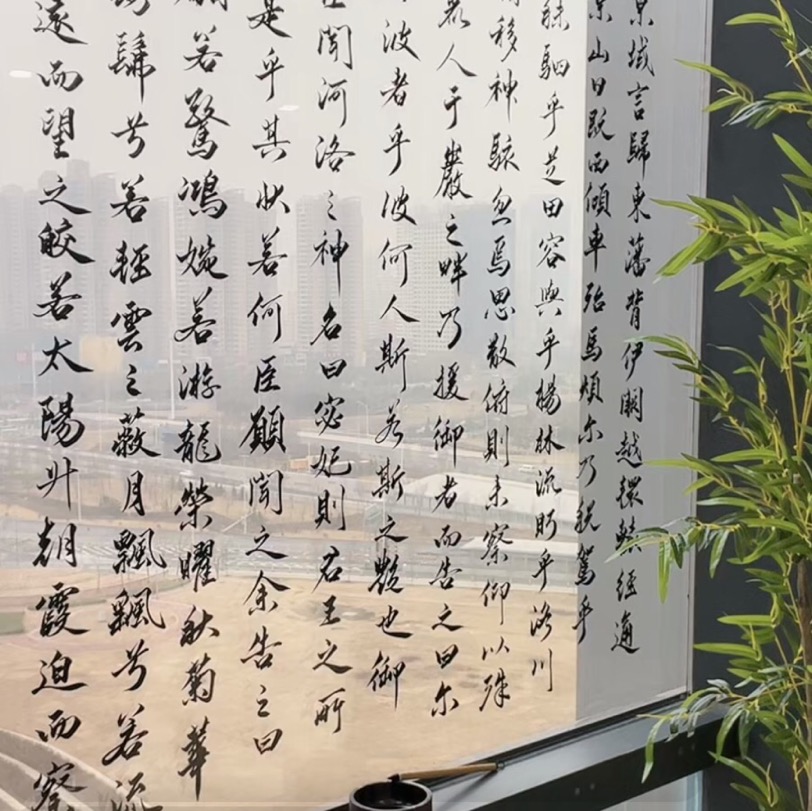 京域言歸東藩背伊闕越轘轅經通
山日既西傾車殆馬煩尓乃税駕乎
秣駟乎芝田容與乎楊林流眄乎洛川
移神駭忽焉思散俯則未察仰以殊
麗人于巖之畔乃援御者而告之曰尓
彼者乎彼何人斯若斯之艷也御
聞河洛之神名曰宓妃則君王之所
是乎其狀若何臣願聞之余告之曰
若驚鴻婉若游龍榮曜秋菊華
髴兮若輕雲之蔽月飄飄兮若流
遠而望之皎若太陽升朝霞迫而察